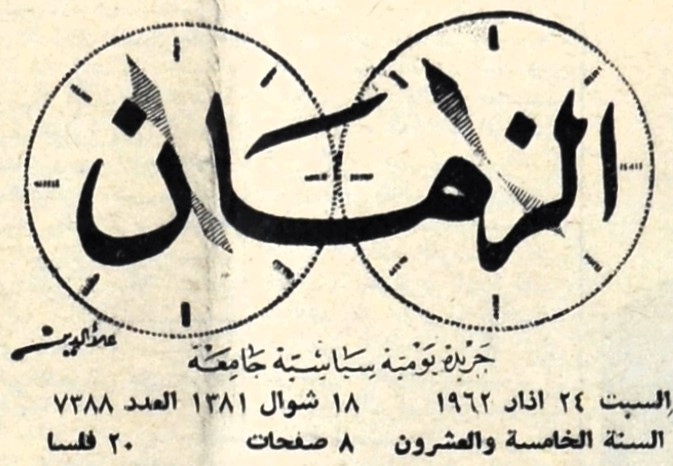 الزمان
علاءالدين
جريدة يومية سياسية جامعة
السبت ٢٤ اذار ١٩٦٢ ١٨ شوال ١٣٨١ العدد ٧٣٨٨
السنة الخامسة والعشرون ٨ صفحات ٢٠ فلسا